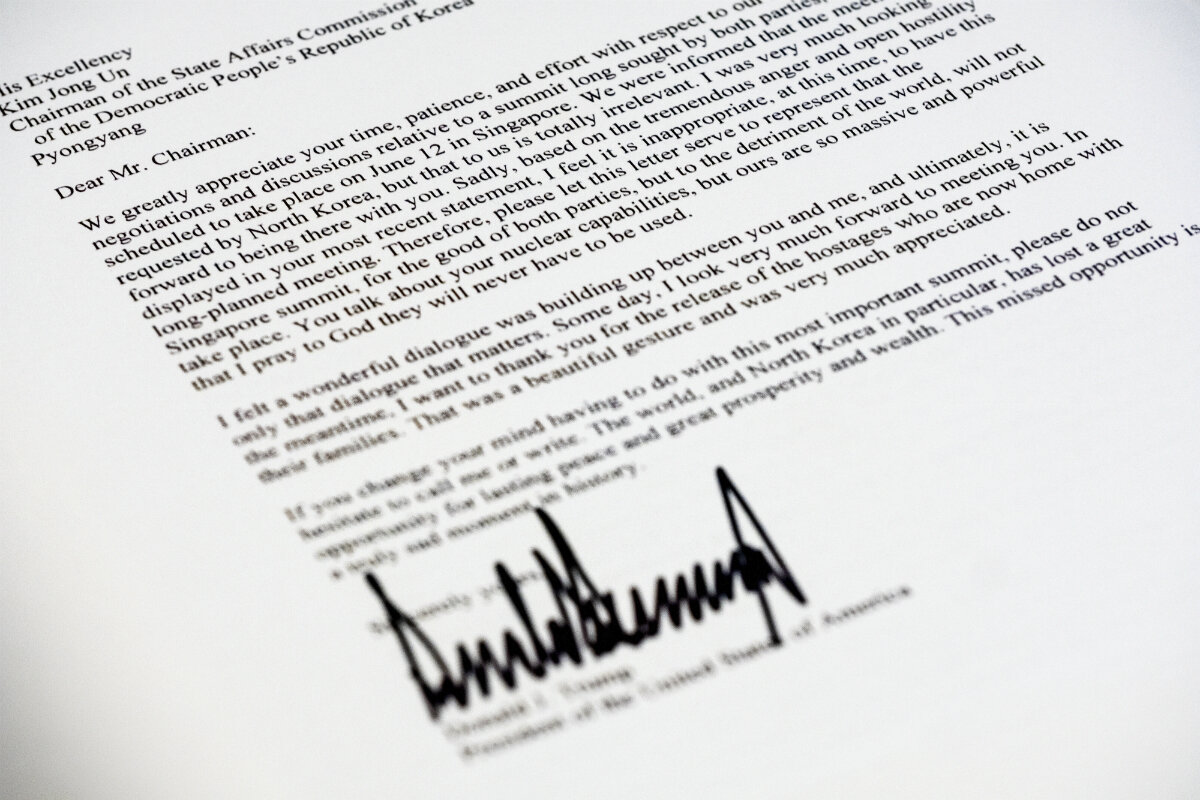 His Excellency
Kim Jong Un
Chairman of the State Affairs Commission
of the Democratic People's Republic of Korea
Pyongyang
Dear Mr. Chairman:
We greatly appreciate your time, patience, and effort with respect to our
negotiations and discussions relative to a summit long sought by both parties,
scheduled to take place on June 12 in Singapore. We were informed that the meeting
requested by North Korea, but that to us is totally irrelevant. I was very much looking
forward to being there with you. Sadly, based on the tremendous anger and open hostility
displayed in your most recent statement, I feel it is inappropriate, at this time, to have this
long-planned meeting. Therefore, please let this letter serve to represent that the
Singapore summit, for the good of both parties, but to the detriment of the world, will not
take place. You talk about your nuclear capabilities, but ours are so massive and powerful
that I pray to God they will never have to be used.
I felt a wonderful dialogue was building up between you and me, and ultimately, it is
only that dialogue that matters. Some day, I look very much forward to meeting you. In
the meantime, I want to thank you for the release of the hostages who are now home with
their families. That was a beautiful gesture and was very much appreciated.
If you change your mind having to do with this most important summit, please do not
hesitate to call me or write. The world, and North Korea in particular, has lost a great
opportunity for lasting peace and great prosperity and wealth. This missed opportunity is
a truly sad moment in history.
Sincerely yours,
Donald J. Trump
President of the United States of America